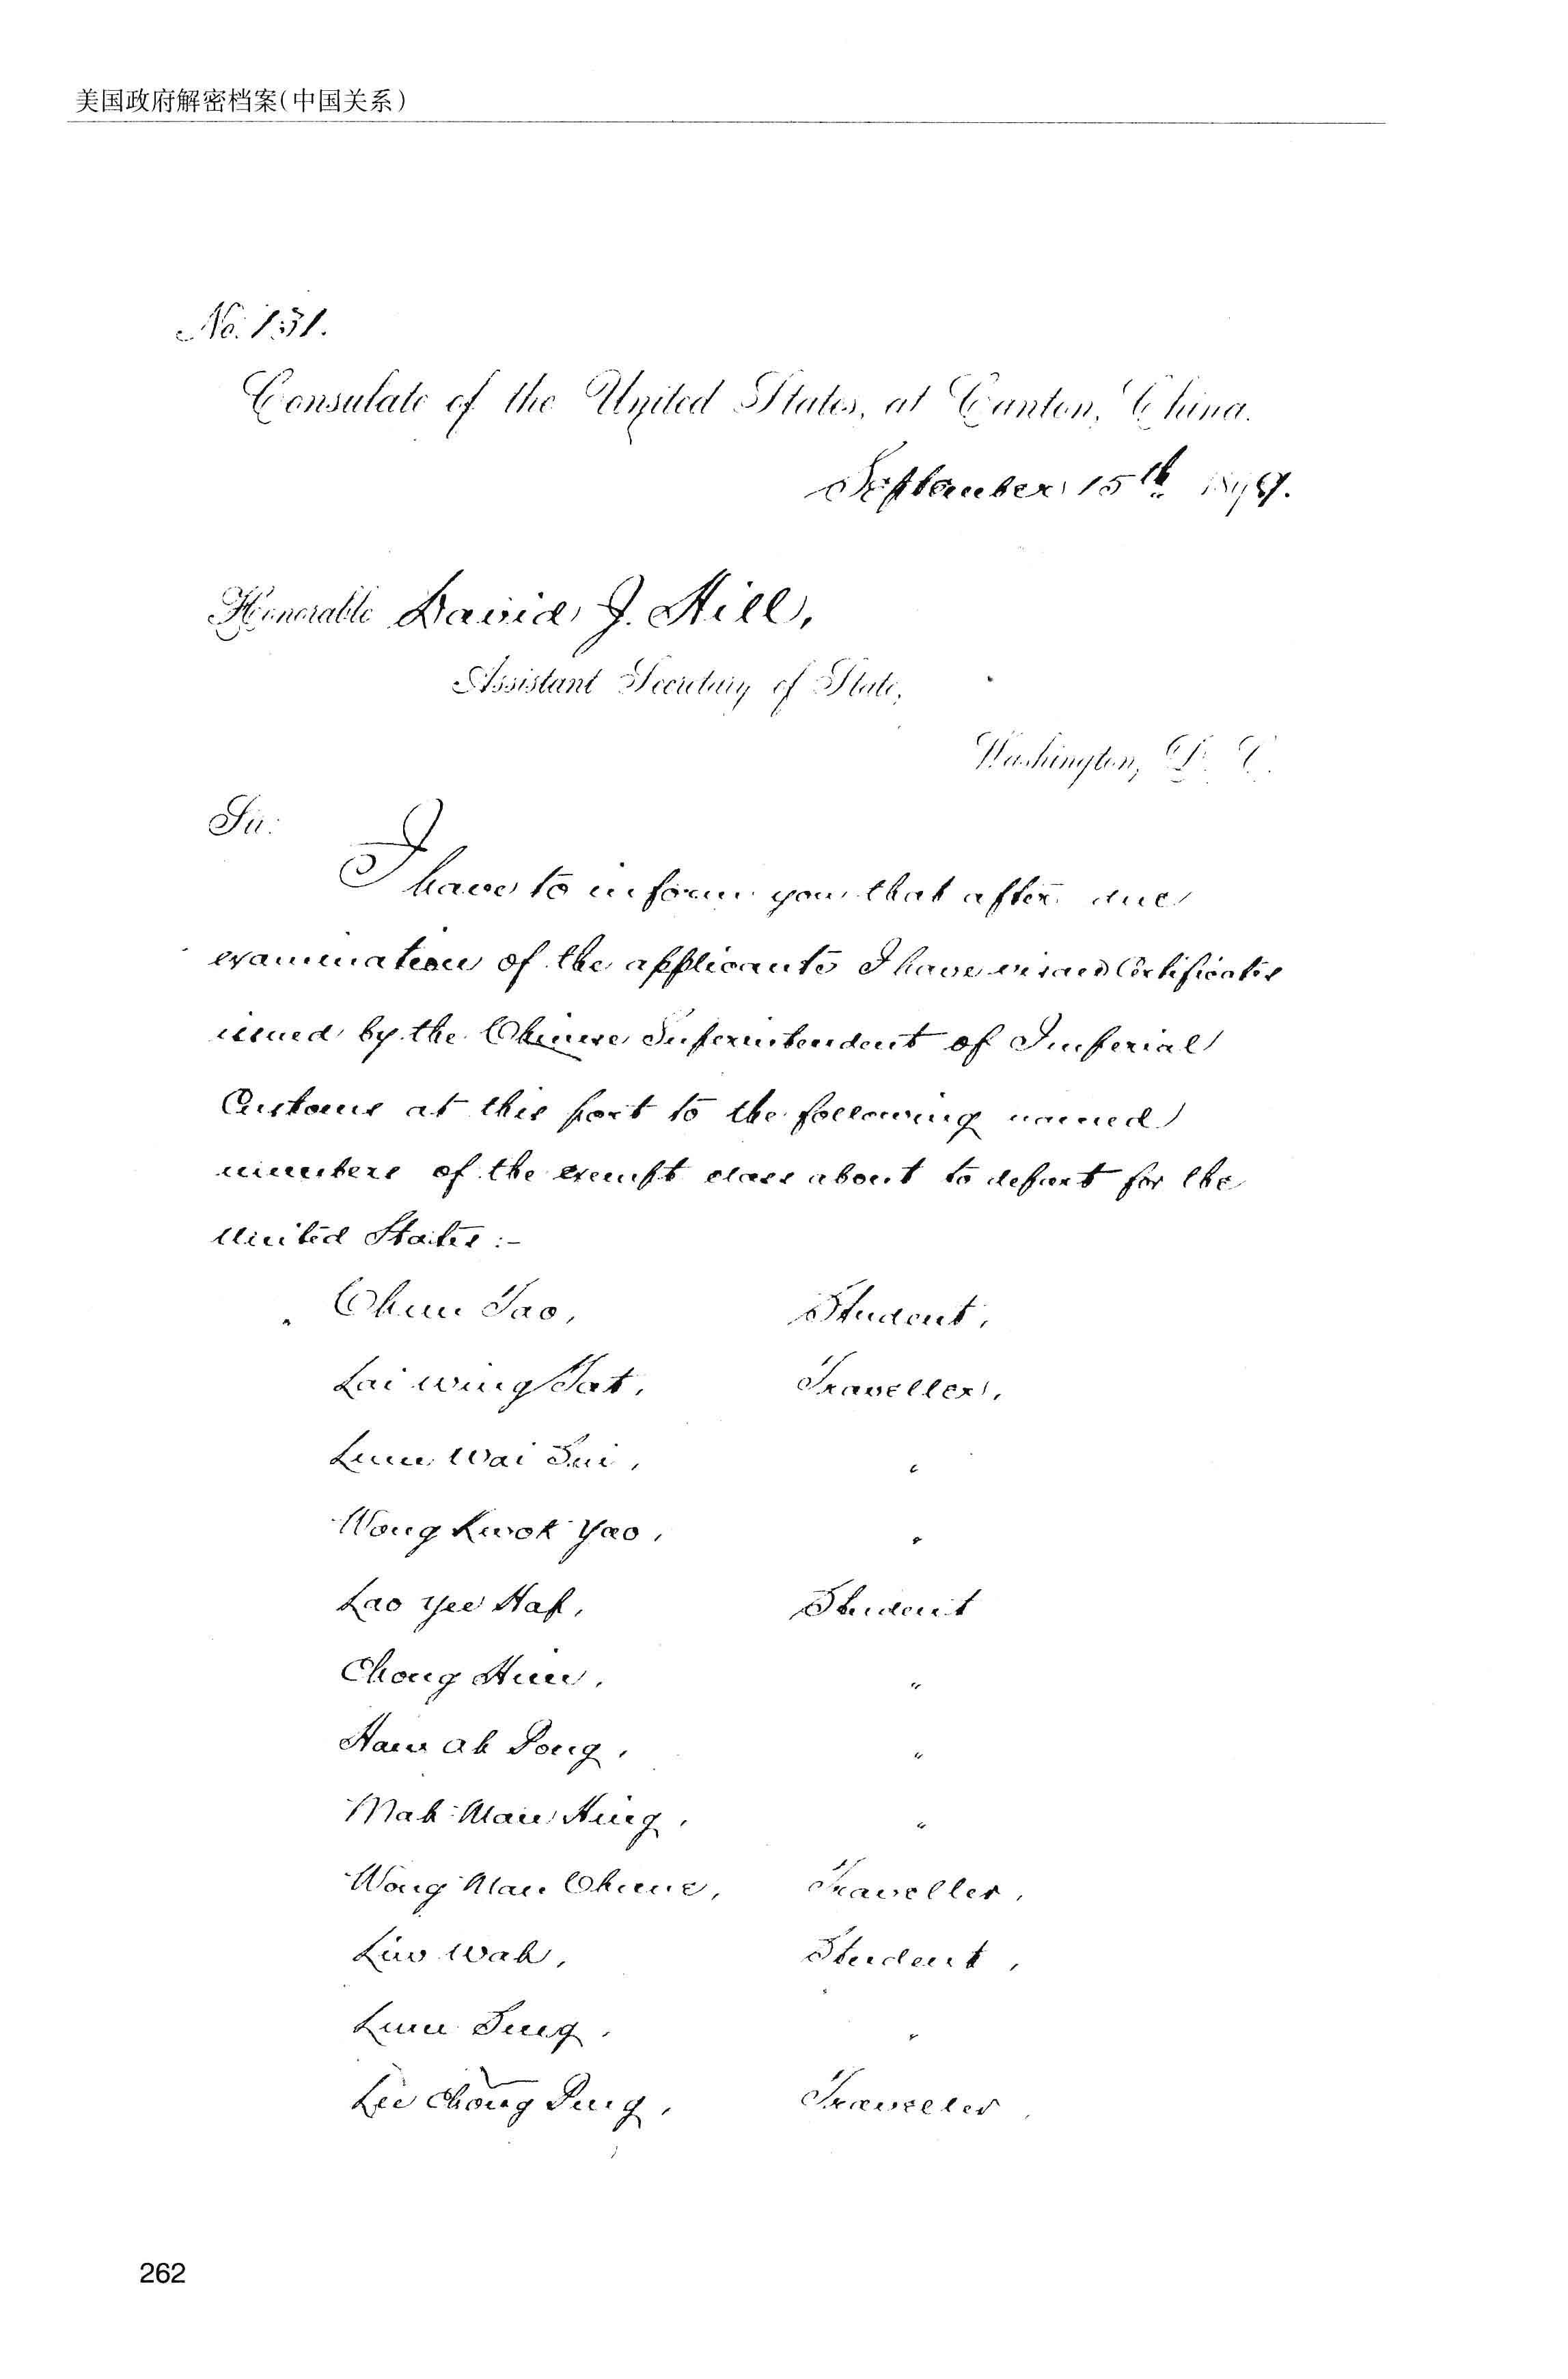 美国政府解密档案(中国关系)
No. 131.
Consulate of the United States, at Canton, China.
September 15th 1899.
Honorable David J. Hill,
Assistant Secretary of State,
Washington, D. C.
Sir:
I have to inform you that after due
examination of the applicants I have visaed Certificates
issued by the Chinese Superintendent of Imperial
Customs at this port to the following named
members of the exempt class about to depart for the
United States :-
Chun Tao, Student,
Lai Wing Tat, Traveller,
Lum Wai Sui, "
Wong Kwok Yao, "
Lao Yee Hap, Student
Chong Hun, "
Ham Ah Pong, "
Mah Man Hing, "
Wong Man Chune, Traveller,
Liu Wah, Student,
Lum Sung, "
Lee Chong Pung, Traveller
262